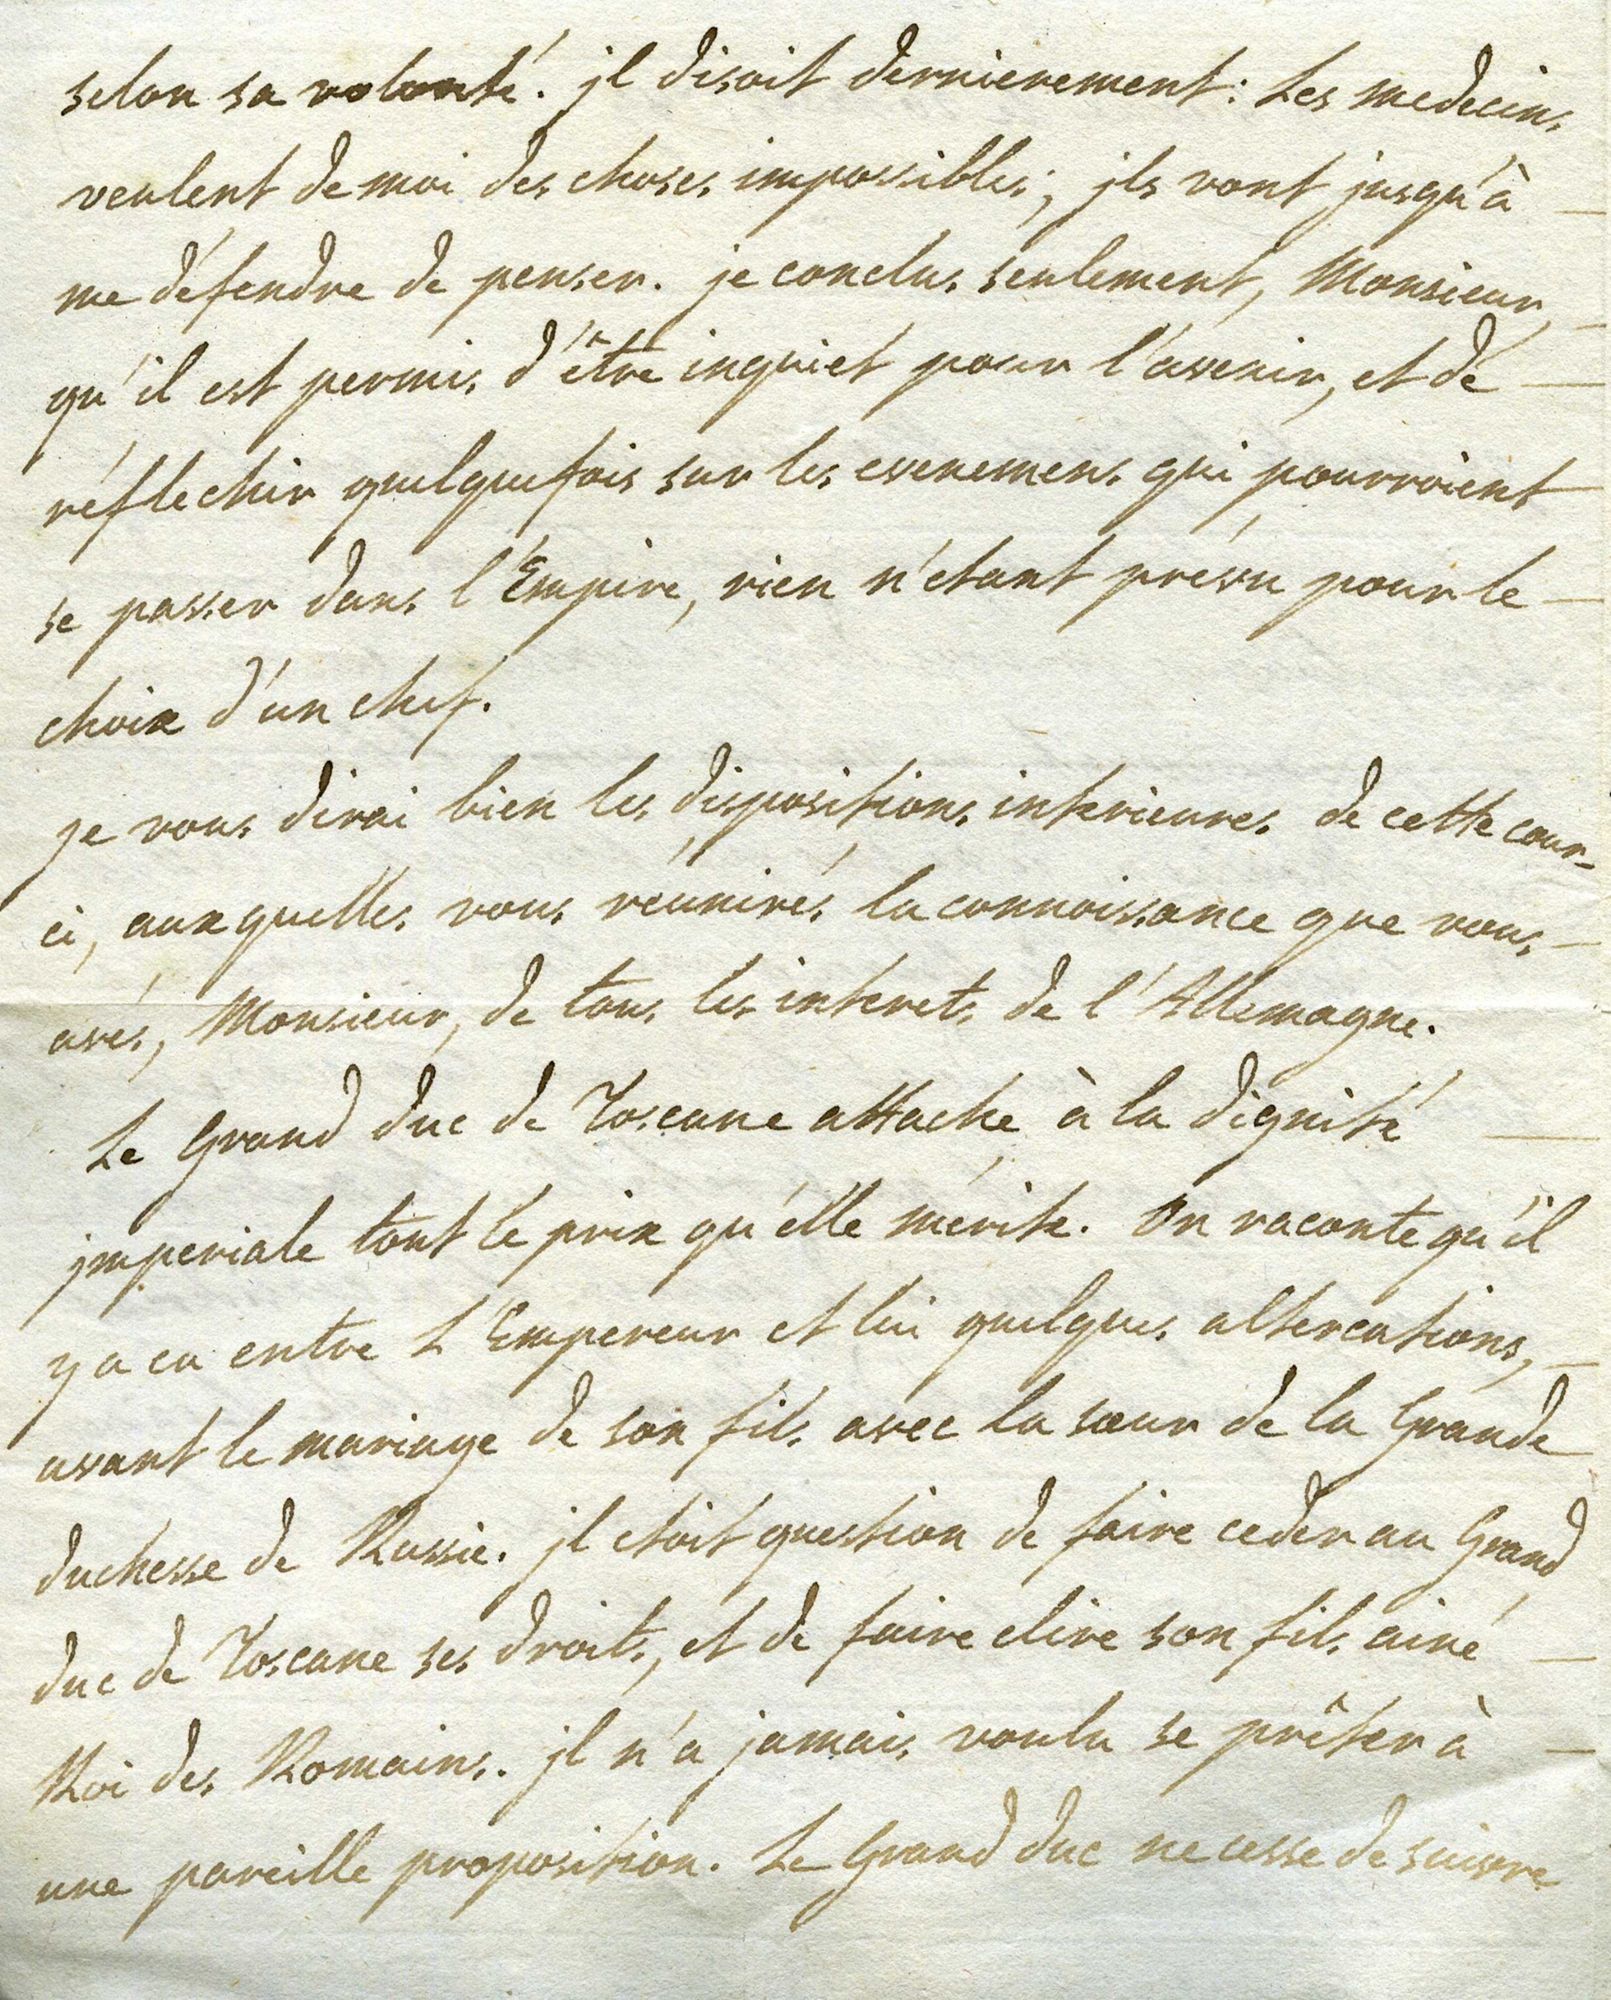 selon sa volonté. jl disoit dernierement: Les medecins
veulent de moi des choses impossibles; jls vont jusqu'à
me défendre de penser. je conclus seulement, Monsieur,
qu'il est permis d'être inquiet pour l'avenir, et de
réflechir quelquefois sur les evenemens qui pourroient
se passer dans l'Empire, rien n'etant prévu pour le
choix d'un chef.
je vous dirai bien les dispositions interieures de cette cour-
ci, auxquelles vous réunirés la connoissance que vous
avés, Monsieur, de tous les interets de l'Allemagne.
Le Grand duc de Toscane attache à la dignité
jmperiale tout le prix qu'elle mérite. On raconte qu'il
y a eu entre L'Empereur et lui quelques altercations,
avant le mariage de son fils avec la sœur de la Grande
duchesse de Russie. jl etoit question de faire ceder au Grand
duc de Toscane ses droits, et de faire elire son fils ainé
Roi des Romains. jl n'a jamais voulu se prêter à
une pareille proposition. Le Grand duc ne cesse de suivre